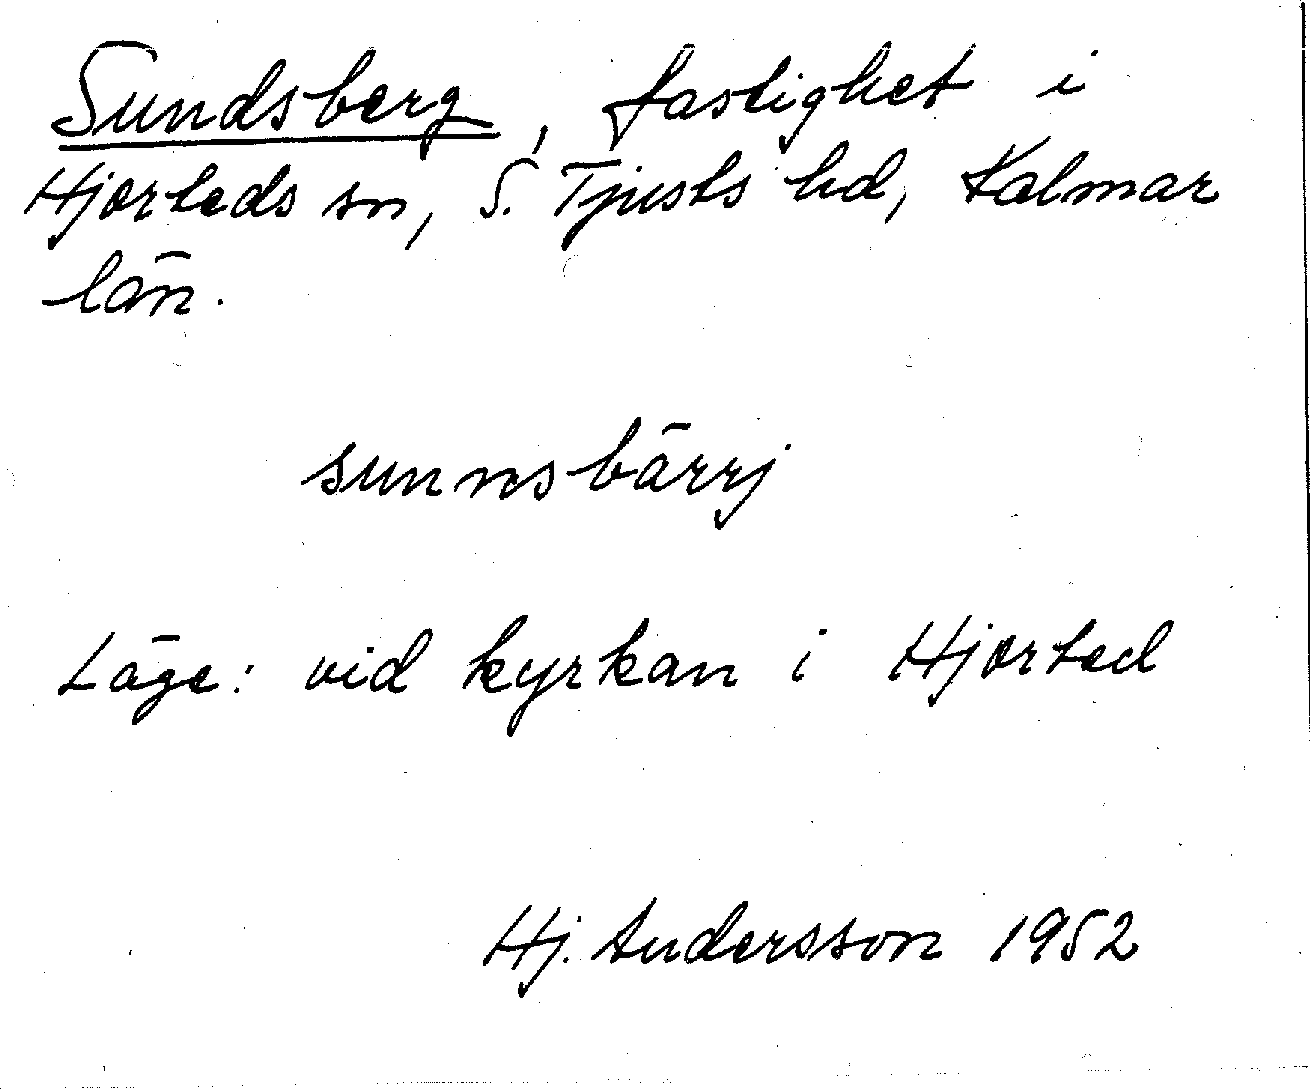 Sundsberg, fastighet i
Hjorteds sn, S. Tjusts hd, Kalmar
län.
sunnsbärrj
Läge: vid kyrkan i Hjorted
Hj. Andersson 1952